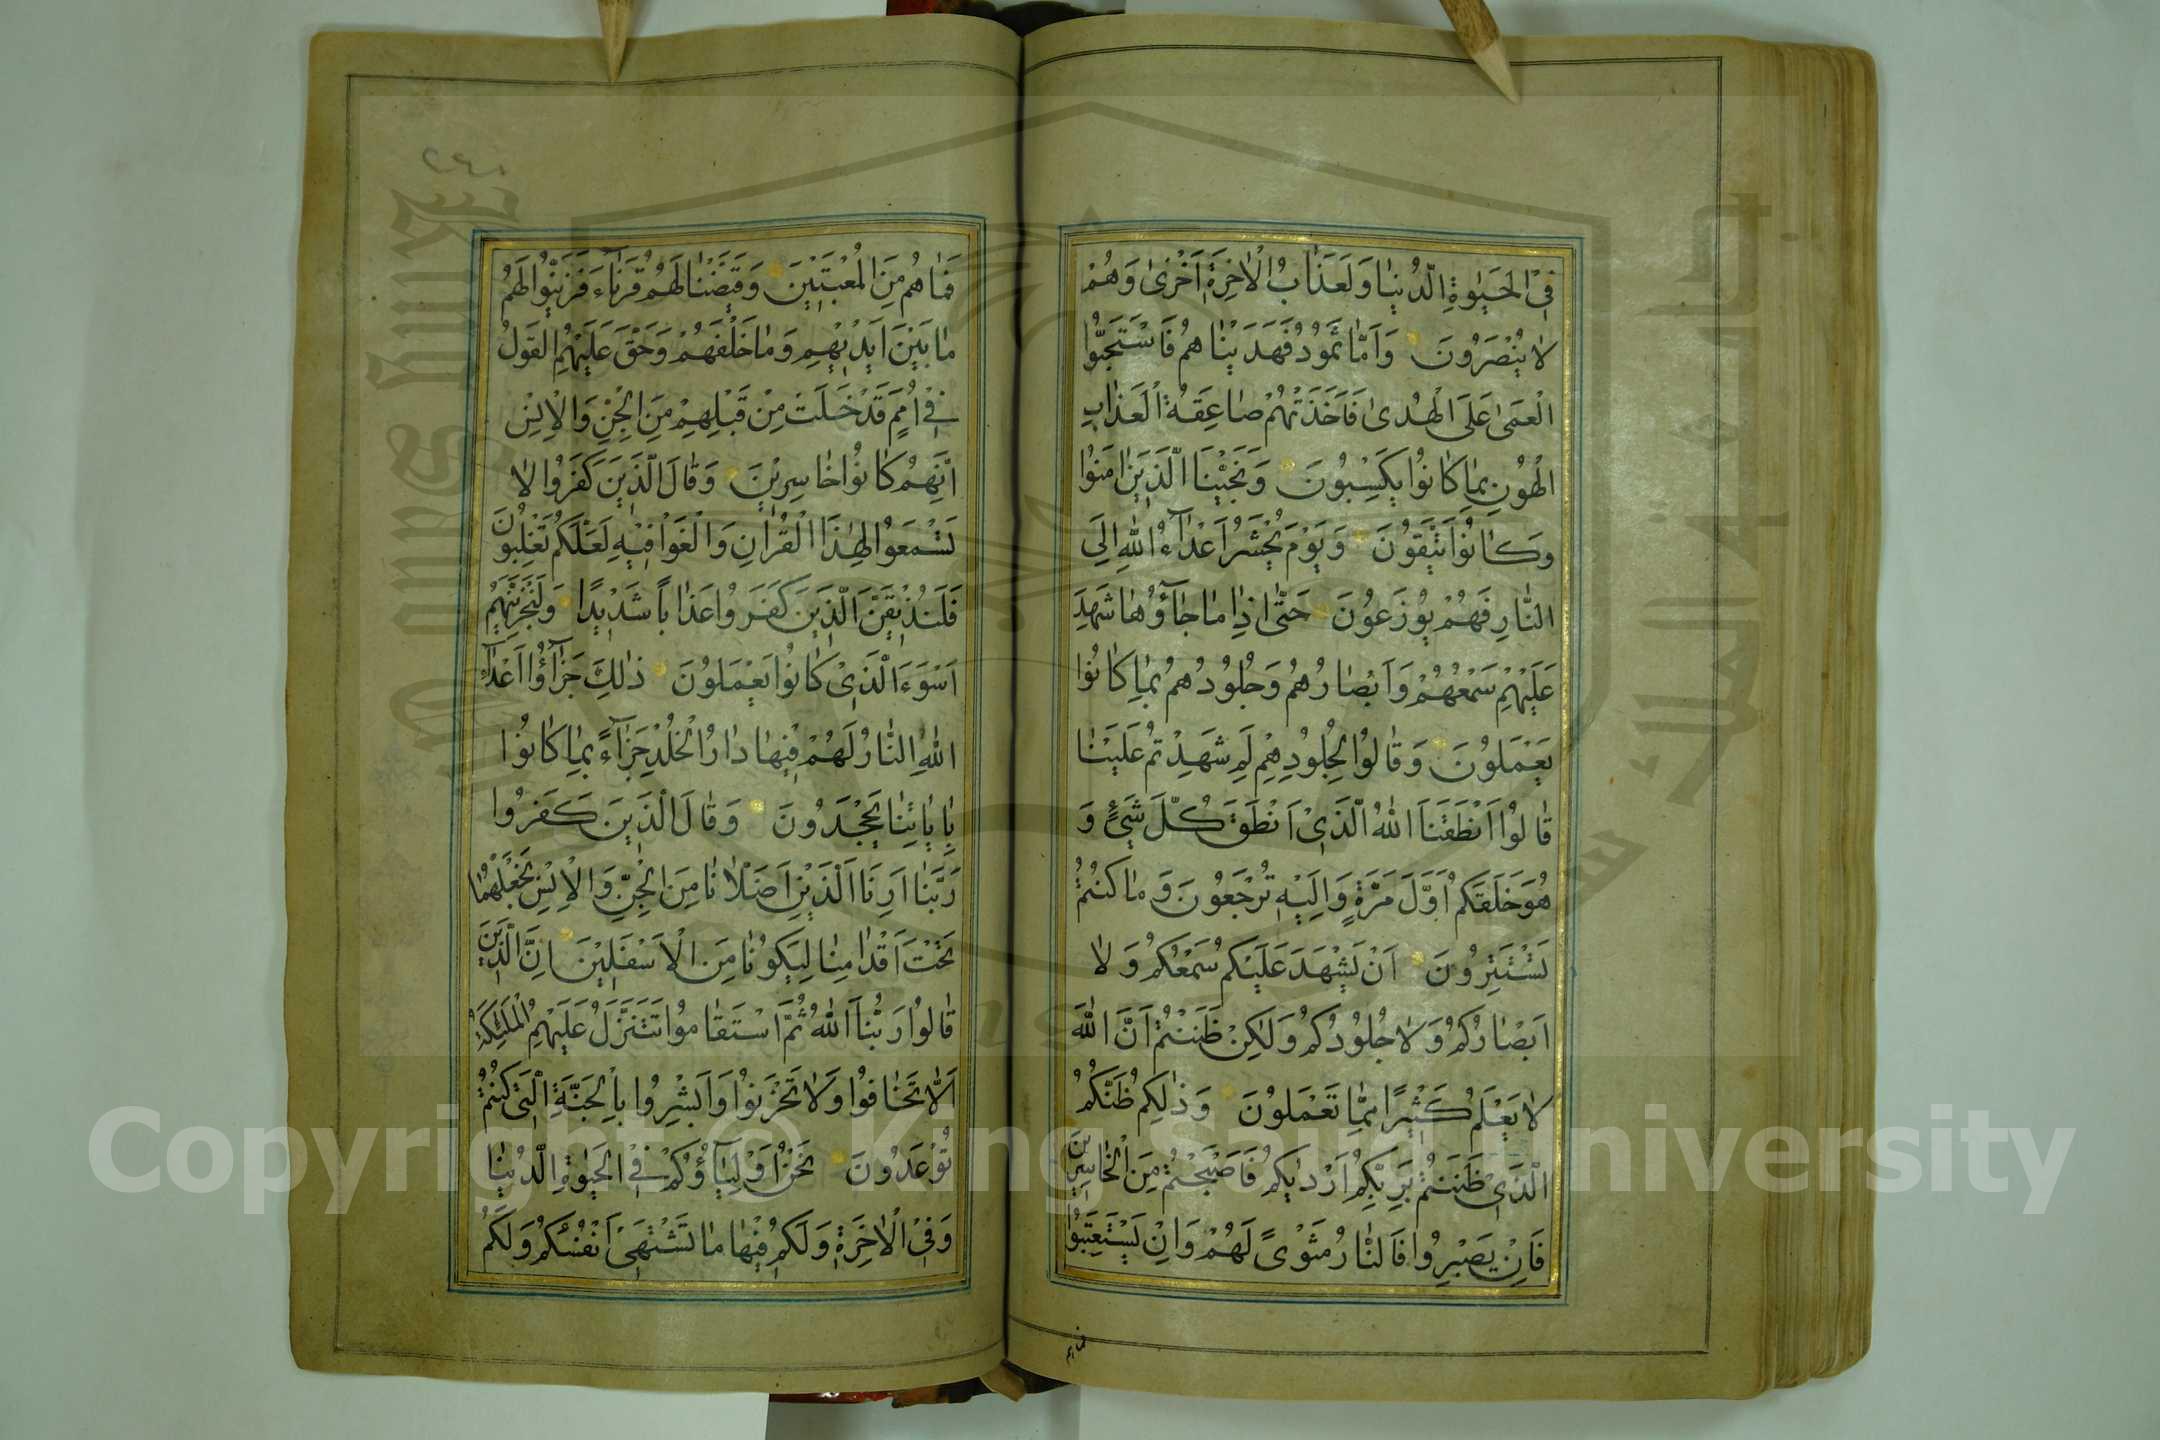 فِي الْحَيٰوةِ الدُّنْيَا وَلَعَذَابُ الْاٰخِرَةِ اَخْزٰى وَهُمْ
لَا يُنْصَرُونَ وَاَمَّا ثَمُودُ فَهَدَيْنَاهُمْ فَاسْتَحَبُّوا
الْعَمٰى عَلَى الْهُدٰى فَاَخَذَتْهُمْ صَاعِقَةُ الْعَذَابِ
الْهُونِ بِمَا كَانُوا يَكْسِبُونَ وَنَجَّيْنَا الَّذِينَ اٰمَنُوا
وَكَانُوا يَتَّقُونَ وَيَوْمَ يُحْشَرُ اَعْدَآءُ اللّٰهِ اِلَى
النَّارِ فَهُمْ يُوزَعُونَ حَتّٰى اِذَا مَا جَآؤُهَا شَهِدَ
عَلَيْهِمْ سَمْعُهُمْ وَاَبْصَارُهُمْ وَجُلُودُهُمْ بِمَا كَانُوا
يَعْمَلُونَ وَقَالُوا لِجُلُودِهِمْ لِمَ شَهِدْتُمْ عَلَيْنَا
قَالُوا اَنْطَقَنَا اللّٰهُ الَّذِي اَنْطَقَ كُلَّ شَيْءٍ وَ
هُوَ خَلَقَكُمْ اَوَّلَ مَرَّةٍ وَاِلَيْهِ تُرْجَعُونَ وَمَا كُنْتُمْ
تَسْتَتِرُونَ اَنْ يَشْهَدَ عَلَيْكُمْ سَمْعُكُمْ وَلَا
اَبْصَارُكُمْ وَلَا جُلُودُكُمْ وَلٰكِنْ ظَنَنْتُمْ اَنَّ اللّٰهَ
لَا يَعْلَمُ كَثِيرًا مِمَّا تَعْمَلُونَ وَذٰلِكُمْ ظَنُّكُمُ
الَّذِي ظَنَنْتُمْ بِرَبِّكُمْ اَرْدٰيكُمْ فَاَصْبَحْتُمْ مِنَ الْخَاسِرِينَ
فَاِنْ يَصْبِرُوا فَالنَّارُ مَثْوًى لَهُمْ وَاِنْ يَسْتَعْتِبُوا
فماهم
٢٤٠
فَمَا هُمْ مِنَ الْمُعْتَبِينَ وَقَيَّضْنَا لَهُمْ قُرَنَآءَ فَزَيَّنُوا لَهُمْ
مَا بَيْنَ اَيْدِيهِمْ وَمَا خَلْفَهُمْ وَحَقَّ عَلَيْهِمُ الْقَوْلُ
فِي اُمَمٍ قَدْ خَلَتْ مِنْ قَبْلِهِمْ مِنَ الْجِنِّ وَالْاِنْسِ
اِنَّهُمْ كَانُوا خَاسِرِينَ وَقَالَ الَّذِينَ كَفَرُوا لَا
تَسْمَعُوا لِهٰذَا الْقُرْاٰنِ وَالْغَوْا فِيهِ لَعَلَّكُمْ تَغْلِبُونَ
فَلَنُذِيقَنَّ الَّذِينَ كَفَرُوا عَذَابًا شَدِيدًا وَلَنَجْزِيَنَّهُمْ
اَسْوَءَ الَّذِي كَانُوا يَعْمَلُونَ ذٰلِكَ جَزَآؤُا اَعْدَآءِ
اللّٰهِ النَّارُ لَهُمْ فِيهَا دَارُ الْخُلْدِ جَزَآءً بِمَا كَانُوا
بِاٰيَاتِنَا يَجْحَدُونَ وَقَالَ الَّذِينَ كَفَرُوا
رَبَّنَا اَرِنَا الَّذَيْنِ اَضَلَّانَا مِنَ الْجِنِّ وَالْاِنْسِ نَجْعَلْهُمَا
تَحْتَ اَقْدَامِنَا لِيَكُونَا مِنَ الْاَسْفَلِينَ اِنَّ الَّذِينَ
قَالُوا رَبُّنَا اللّٰهُ ثُمَّ اسْتَقَامُوا تَتَنَزَّلُ عَلَيْهِمُ الْمَلٰٓئِكَةُ
اَلَّا تَخَافُوا وَلَا تَحْزَنُوا وَاَبْشِرُوا بِالْجَنَّةِ الَّتِي كُنْتُمْ
تُوعَدُونَ نَحْنُ اَوْلِيَآؤُكُمْ فِي الْحَيٰوةِ الدُّنْيَا
وَفِي الْاٰخِرَةِ وَلَكُمْ فِيهَا مَا تَشْتَهِي اَنْفُسُكُمْ وَلَكُمْ
Copyright © King Saud University